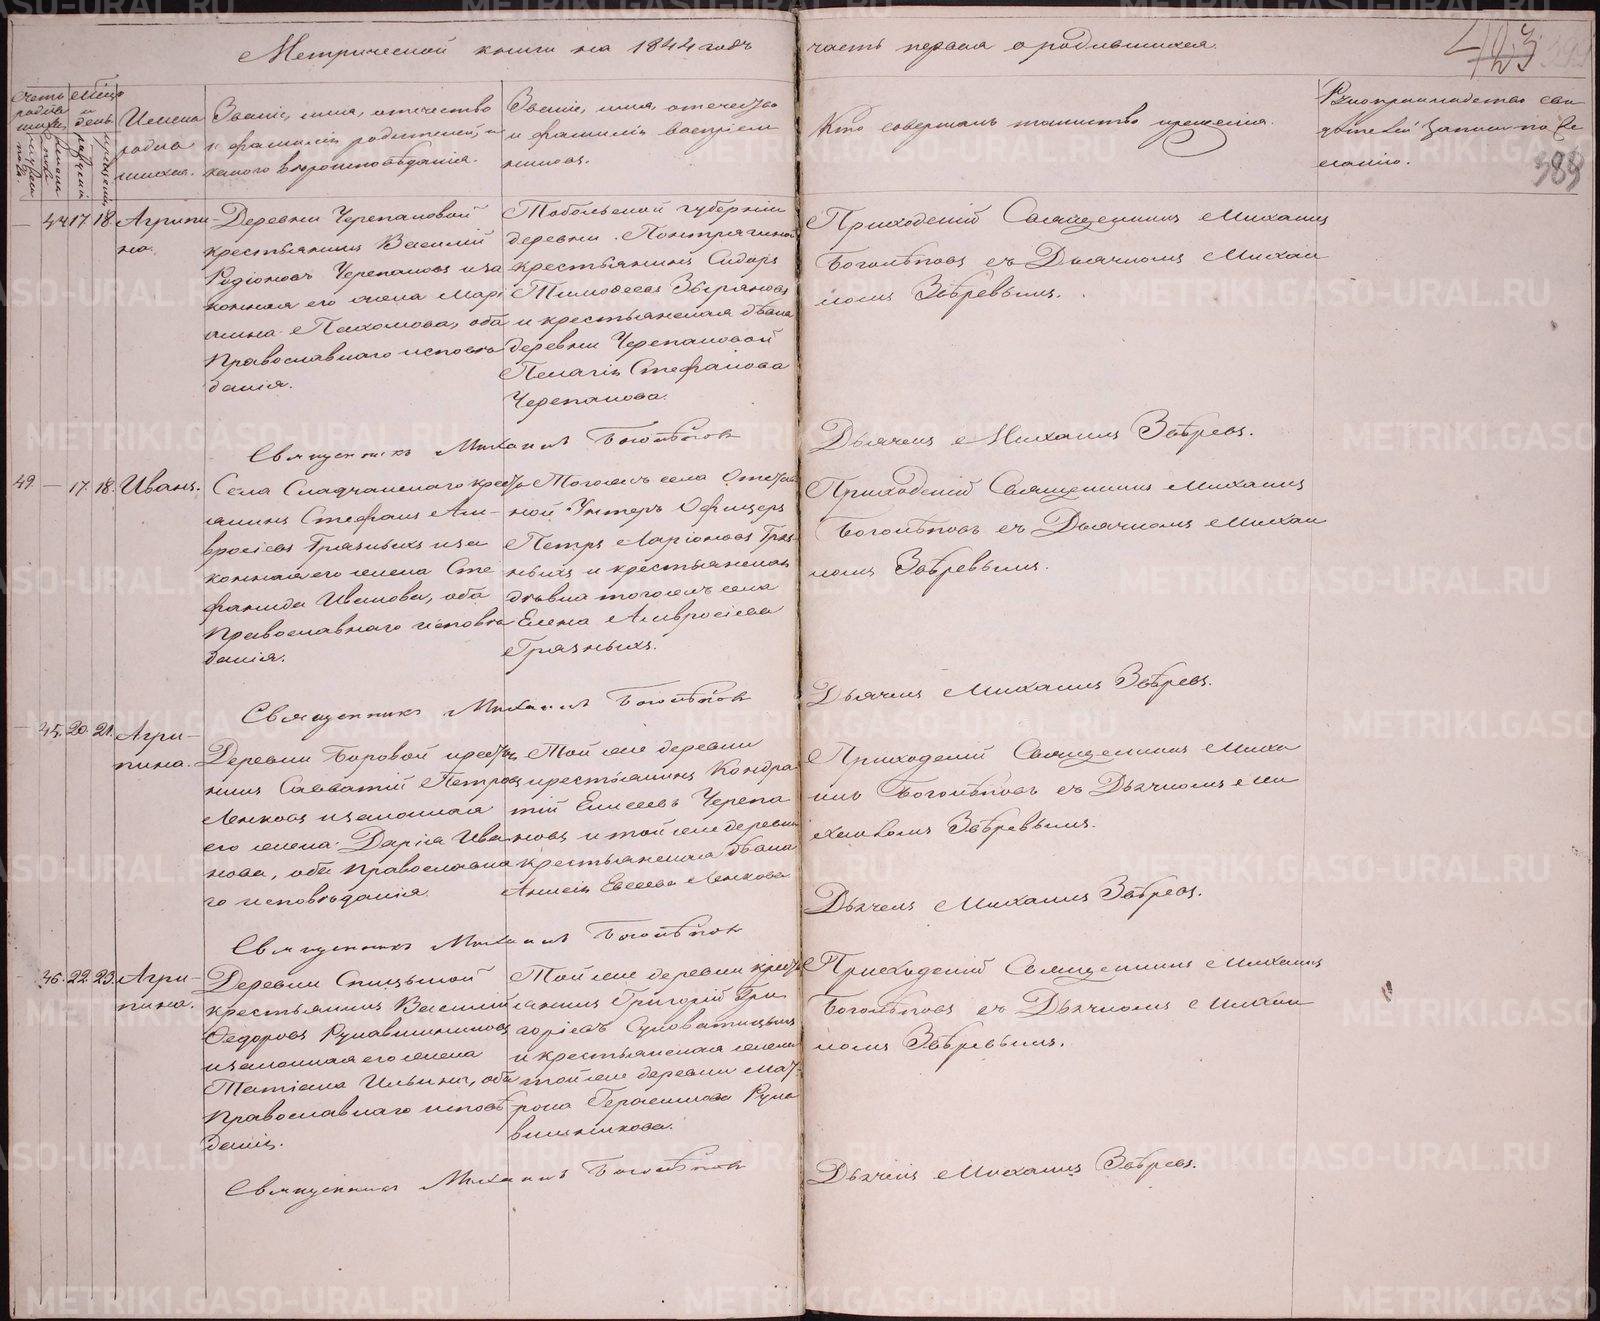 Метрической книги на 1844 годъ
часть первая о родившихся.
423
389
Имена родившихся.
Званіе, имя, отечество и фамилія родителей, и какого вѣроисповѣданія.
Званіе, имя, отечество и фамилія воспріемниковъ.
Кто совершалъ таинство крещенія.
Рукоприкладство свидѣтелей записи по желанію.
— 44 17 18 Агрипи-
на.
Деревни Черепановой
крестьянинъ Василій
Родіоновъ Черепановъ и за
конная его жена Марі
амна Пахомова, оба
Православнаго исповѣ
данія.
Тобольской губерніи
деревни
крестьянинъ Сидоръ
Тимофеевъ Зыряновъ
и крестьянская дѣвка
деревни Черепановой
Пелагія Стефанова
Черепанова.
Приходскій Священникъ Михаилъ
Боголѣповъ съ Дьячкомъ Михаи
ломъ Звѣревымъ.
Священникъ Михаилъ Боголѣповъ
Дьячекъ Михаилъ Звѣревъ.
49 — 17. 18. Иванъ.
Села Сладчанскаго кресть
янинъ Стефанъ Ам-
вросіевъ Грязныхъ и за
конная его жена Сте
фанида Иванова, оба
Православнаго исповѣ
данія.
Тогожъ села Отстав
ной Унтеръ Офицеръ
Петръ Ларіоновъ Гряз
ныхъ и крестьянская
дѣвка тогожъ села
Елена Амвросіева
Грязныхъ.
Приходскій Священникъ Михаилъ
Боголѣповъ съ Дьячкомъ Михаи
ломъ Звѣревымъ.
Священникъ Михаилъ Боголѣповъ
Дьячекъ Михаилъ Звѣревъ.
— 45. 20. 21. Агри-
пина.
Деревни Боровой кресть
нинъ Савватій Петровъ
Ленковъ и законная
его жена Дарія Ива
нова, оба Православна
го исповѣданія.
Той же деревни
крестьянинъ Кондра
тій Елисеевъ Черепа
новъ и той же деревни
крестьянская дѣвка
Анисія Евсеева Ленкова
Приходскій Священникъ Миха
илъ Боголѣповъ съ Дьячкомъ Ми
хаиломъ Звѣревымъ.
Священникъ Михаилъ Боголѣповъ
Дьячекъ Михаилъ Звѣревъ.
— 46. 22. 23. Агри-
пина.
Деревни Спицыной
крестьянинъ Василій
Федоровъ Рукавишниковъ
и законная его жена
Татіана Ильина, оба
Православнаго исповѣ
данія.
Той же деревни кресть
янинъ Григорій Гри
горіевъ
и крестьянская жена
той же деревни Мат-
рона Герасимова Рука
вишникова.
Приходскій Священникъ Михаилъ
Боголѣповъ съ Дьячкомъ Михаи
ломъ Звѣревымъ.
Священникъ Михаилъ Боголѣповъ
Дьячекъ Михаилъ Звѣревъ.
METRIKI.GASO-URAL.RU